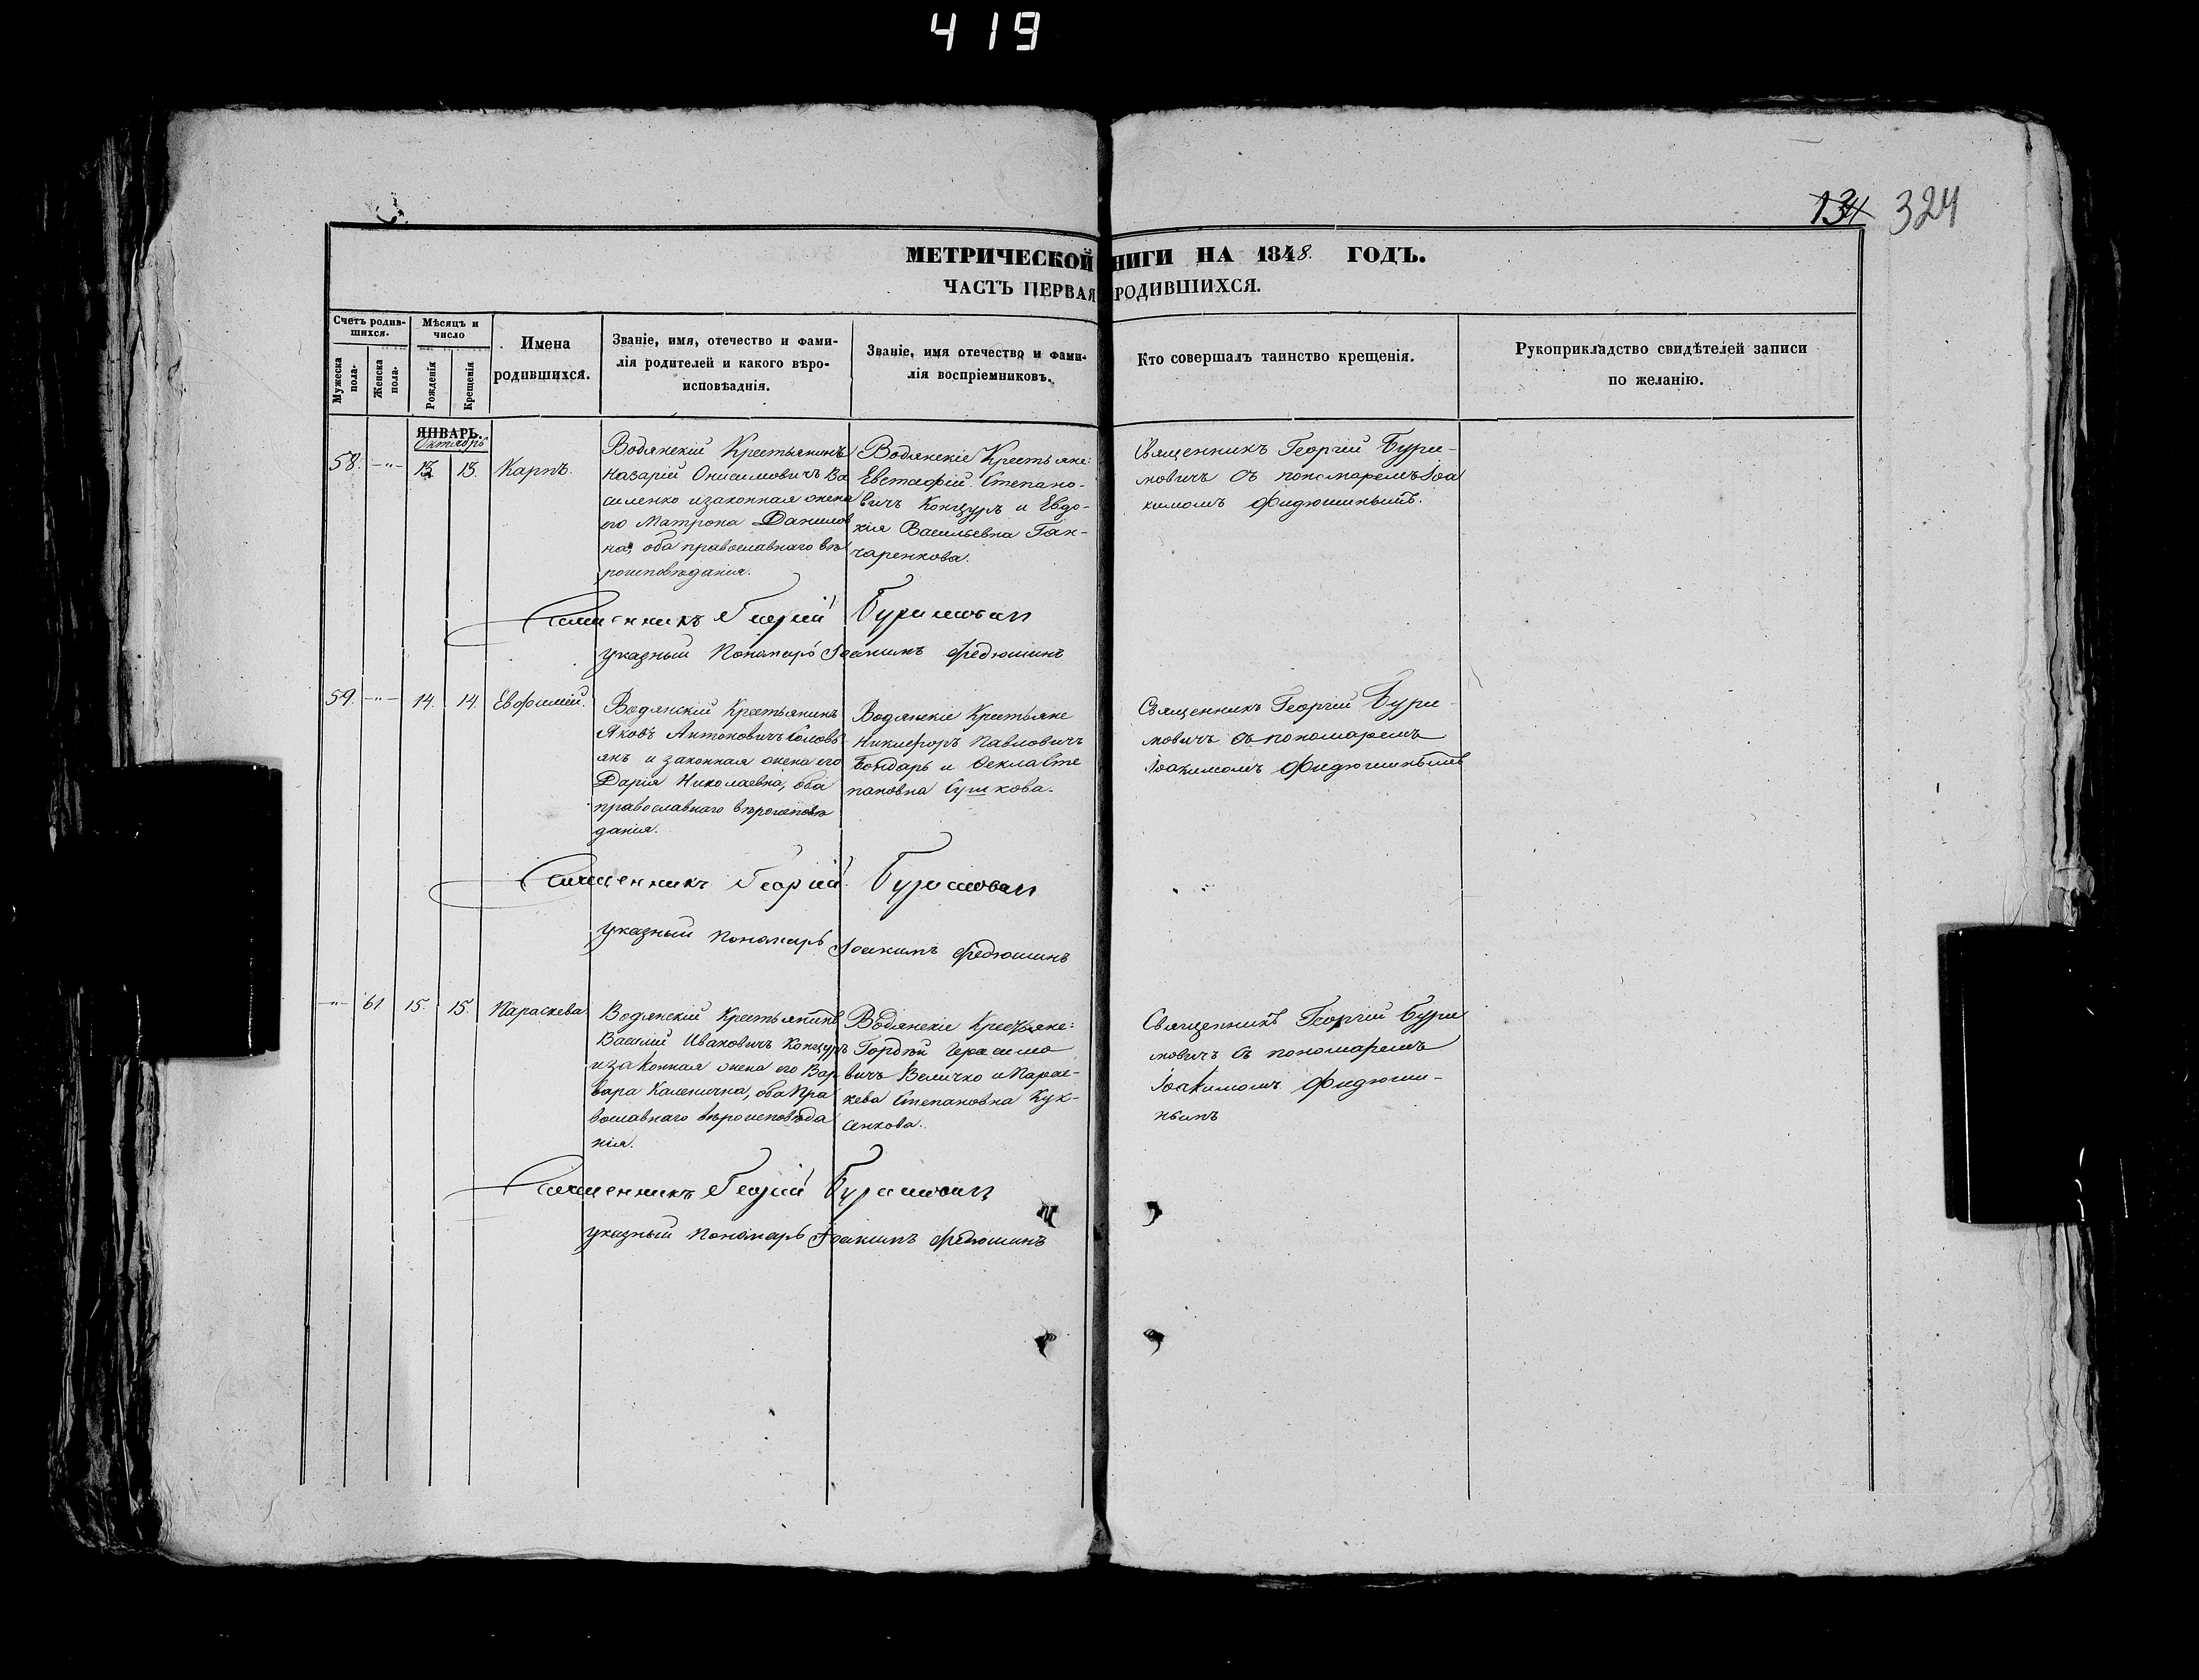 419
134 324
МЕТРИЧЕСКОЙ НИГИ НА 1848. ГОДЪ.
ЧАСТЬ ПЕРВАЯ РОДИВШИХСЯ.
Счетъ родив-
шихся.
Мужеска
пола.
Женска
пола.
Мѣсяцъ и
число
Рожденія
Крещенія
Имена
родившихся.
Званіе, имя, отечество и фами-
лія родителей и какого вѣро-
исповѣаднія.
Званіе, имя отечество и фами-
лія воспріемниковъ.
Кто совершалъ таинство крещенія.
Рукоприкладство свидѣтелей записи
по желанію.
ЯНВАРЬ.
Октябрь
58. —"— 13. Карпъ.
Водянскій Крестьянинъ
Назарій Онисимовичъ Ва
силенко и законная жена
его Матрона Данилов
на, оба православнаго вѣ
роисповѣданія.
Водянскіе Крестьяне:
Евстафій Степано-
вичъ Концуръ и Евдо-
кія Васильевна Ган-
чаренкова.
Священникъ Георгій Бури-
мовичъ съ пономаремъ Іоа
кимомъ Фидюшинымъ.
Священникъ Георгій Буримович
указный Пономарь Іоакимъ Федюшинъ
59. —"— 14. 14. Евфимій.
Водянскій Крестьянинъ
Яковъ Антоновичъ Головь
янъ и законная жена его
Дарія Николаевна, оба
православнаго вѣроисповѣ
данія.
Водянскіе Крестьяне
Никифоръ Павловичъ
Бондарь и Оекла Сте
пановна Сушкова.
Священникъ Георгій Бури-
мовичъ съ пономаремъ
Іоакимомъ Фидюшинымъ
Священникъ Георгій Буримович
указный пономарь Іоакимъ Федюшинъ
—"— 61 15. 15. Параскева.
Водянскій Крестьянинъ
Василій Ивановичъ Концуръ
и законная жена его Вар
вара Каленична, оба Пра
вославнаго вѣроисповѣда
нія.
Водянскіе Крестьяне:
Гордѣй Герасимо
вичъ Величко и Парас-
кева Степановна Кук-
сенкова.
Священникъ Георгій Бури
мовичъ съ пономаремъ
Іоакимомъ Фидюши-
нымъ
Священникъ Георгій Буримович
указный пономарь Іоакимъ Федюшинъ